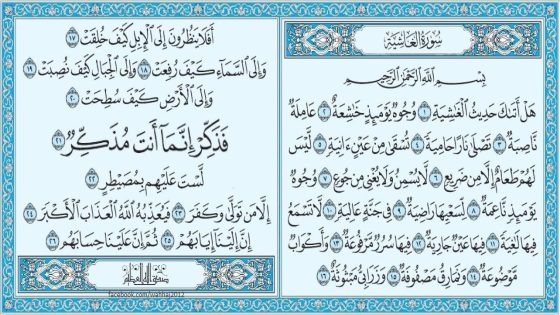 سُورَةُ الغَاشِيَةِ
بِسْمِ اللَّهِ الرَّحْمَٰنِ الرَّحِيمِ
هَلْ أَتَىٰكَ حَدِيثُ الْغَٰشِيَةِ ١ وُجُوهٌ يَوْمَئِذٍ خَٰشِعَةٌ ٢ عَامِلَةٌ
نَّاصِبَةٌ ٣ تَصْلَىٰ نَارًا حَامِيَةً ٤ تُسْقَىٰ مِنْ عَيْنٍ ءَانِيَةٍ ٥ لَّيْسَ
لَهُمْ طَعَامٌ إِلَّا مِن ضَرِيعٍ ٦ لَّا يُسْمِنُ وَلَا يُغْنِي مِن جُوعٍ ٧ وُجُوهٌ
يَوْمَئِذٍ نَّاعِمَةٌ ٨ لِّسَعْيِهَا رَاضِيَةٌ ٩ فِي جَنَّةٍ عَالِيَةٍ ١٠ لَّا تَسْمَعُ
فِيهَا لَٰغِيَةً ١١ فِيهَا عَيْنٌ جَارِيَةٌ ١٢ فِيهَا سُرُرٌ مَّرْفُوعَةٌ ١٣ وَأَكْوَابٌ
مَّوْضُوعَةٌ ١٤ وَنَمَارِقُ مَصْفُوفَةٌ ١٥ وَزَرَابِيُّ مَبْثُوثَةٌ ١٦
أَفَلَا يَنظُرُونَ إِلَى الْإِبِلِ كَيْفَ خُلِقَتْ ١٧
وَإِلَى السَّمَاءِ كَيْفَ رُفِعَتْ ١٨ وَإِلَى الْجِبَالِ كَيْفَ نُصِبَتْ ١٩
وَإِلَى الْأَرْضِ كَيْفَ سُطِحَتْ ٢٠
فَذَكِّرْ إِنَّمَا أَنتَ مُذَكِّرٌ ٢١
لَّسْتَ عَلَيْهِم بِمُصَيْطِرٍ ٢٢
إِلَّا مَن تَوَلَّىٰ وَكَفَرَ ٢٣ فَيُعَذِّبُهُ اللَّهُ الْعَذَابَ الْأَكْبَرَ ٢٤
إِنَّ إِلَيْنَا إِيَابَهُمْ ٢٥ ثُمَّ إِنَّ عَلَيْنَا حِسَابَهُم ٢٦